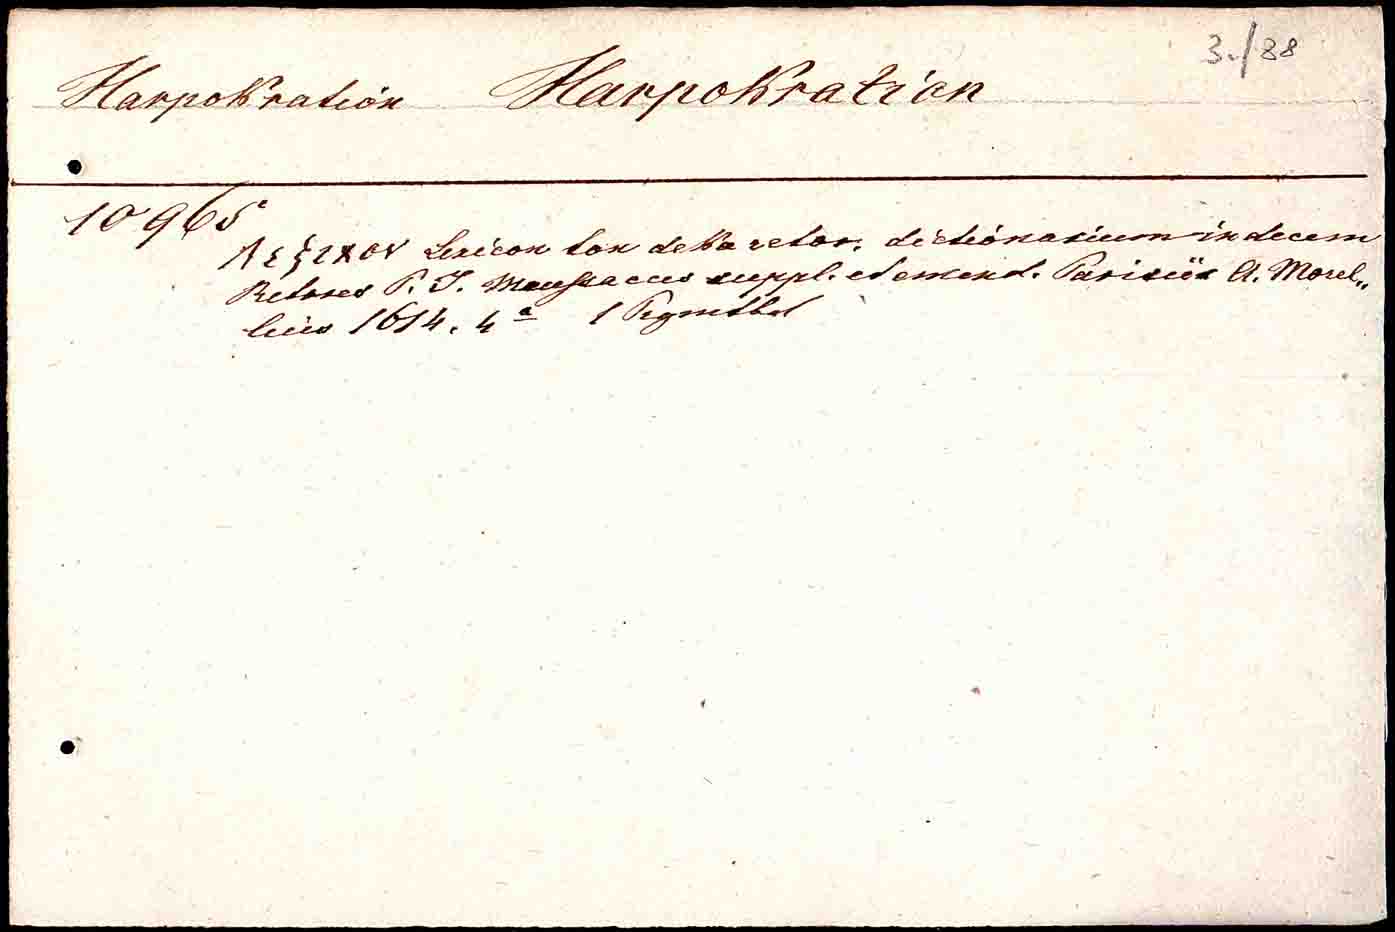 3./88
Harpokration Harpokration
10965
Λεξικον Lexicon ton deka retor. dictionarium in decem
Retores P. J. Maussacus suppl. et emend. Parisiis A. Morel„
lius 1614. 4ᵃ 1